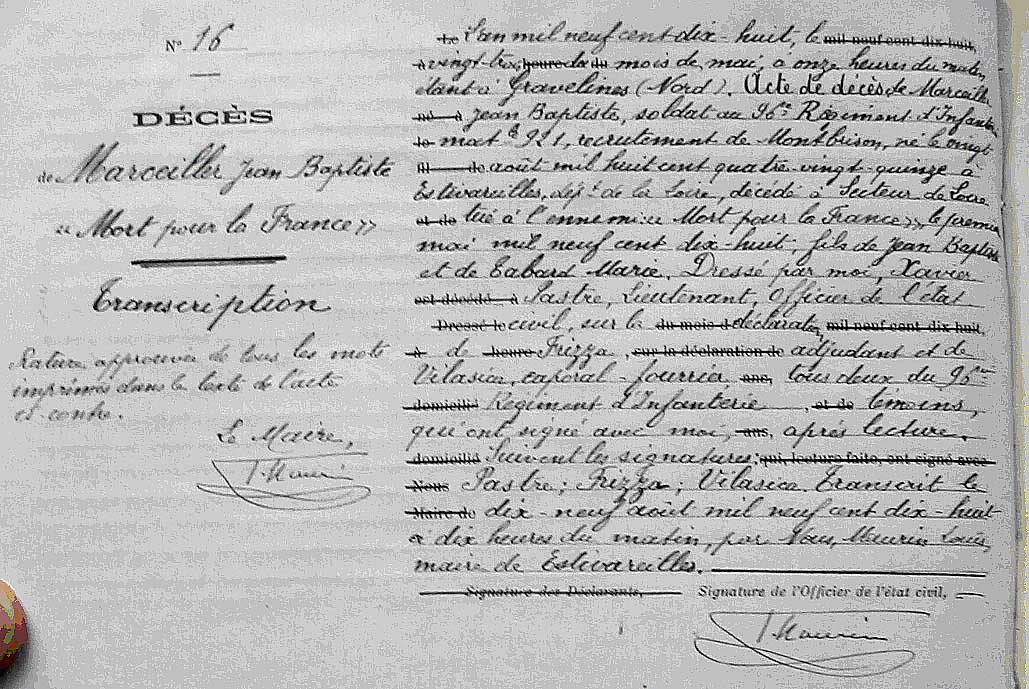 N° 16
DÉCÈS
de Marceiller Jean Baptiste
"Mort pour la France"
Transcription
Rature approuvée de tous les mots
imprimés dans le texte de l'acte
ci-contre.
Le Maire,
L'an mil neuf cent dix-huit, le mil neuf cent dix-huit,
à vingt-trois heure du du mois de mai, à onze heures du matin,
étant à Gravelines (Nord). Acte de décès de Marceiller
Jean Baptiste, soldat au 96e Régiment d'Infanterie
le mat le 921, recrutement de Montbrison, né le vingt
août mil huit cent quatre-vingt-quinze à
Estivareilles, dépt de la Loire, décédé à Secteur de Locre
et de tué à l'ennemi: "Mort pour la France", le premier
mai mil neuf cent dix-huit; fils de Jean Baptiste
et de Tabard Marie. Dressé par moi, Xavier
est décédé à Pastre, Lieutenant, Officier de l'état
Dressé le civil, sur la du mois d déclaration, mil neuf cent dix-huit,
à de heure Frizza, sur la déclaration de adjudant et de
Vilasica, caporal-fourrier, ans, tous deux du 96me
domicilié Régiment d'Infanterie, et de témoins,
qui ont signé avec moi, ans, après lecture.
domicilié Suivent les signatures: qui, lecture faite, ont signé avec
Nous Pastre; Frizza; Vilasica. Transcrit le
Maire de dix-neuf août mil neuf cent dix-huit
à dix heures du matin, par Nous, Maurin Louis,
maire de Estivareilles.
Signature des Déclarants, Signature de l'Officier de l'état civil,